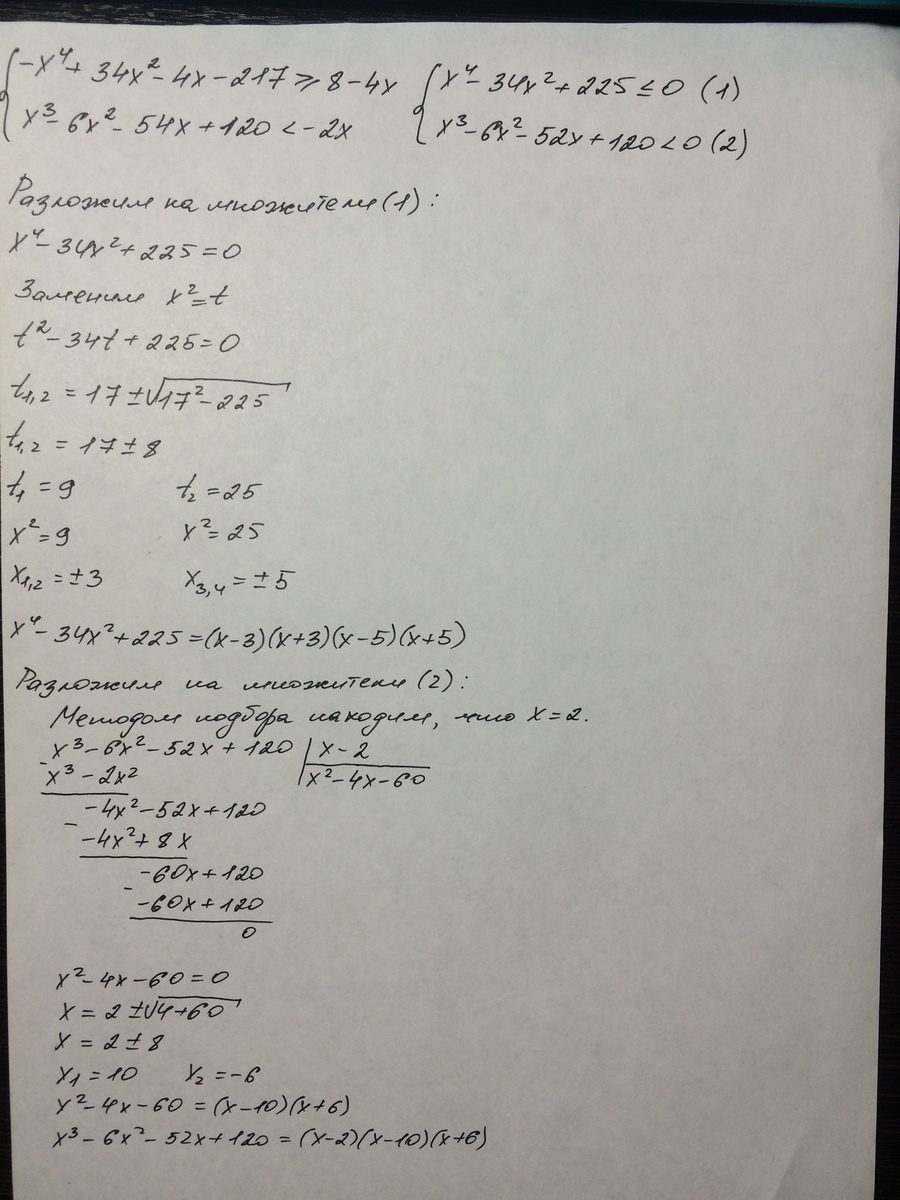 {-x⁴+ 34x²- 4x - 217 ≥ 8 - 4x {x⁴- 34x²+ 225 ≤ 0 (1)
{x³- 6x²- 54x + 120 < -2x {x³- 6x²- 52x + 120 < 0 (2)
Разложим на множители (1):
x⁴- 34x²+ 225 = 0
Заменим x²= t
t²- 34t + 225 = 0
t₁,₂ = 17 ± √17²- 225
t₁,₂ = 17 ± 8
t₁ = 9 t₂ = 25
x²= 9 x²= 25
x₁,₂ = ± 3 x₃,₄ = ± 5
x⁴- 34x²+ 225 = (x-3)(x+3)(x-5)(x+5)
Разложим на множители (2):
Методом подбора находим, что x = 2.
x³- 6x²- 52x + 120 | x - 2
- x³ - 2x² | x²- 4x - 60
-4x²- 52x + 120
- -4x²+ 8x
-60x + 120
- -60x + 120
0
x²- 4x - 60 = 0
x = 2 ± √4+60
x = 2 ± 8
x₁ = 10 x₂ = -6
x²- 4x - 60 = (x-10)(x+6)
x³- 6x²- 52x + 120 = (x-2)(x-10)(x+6)